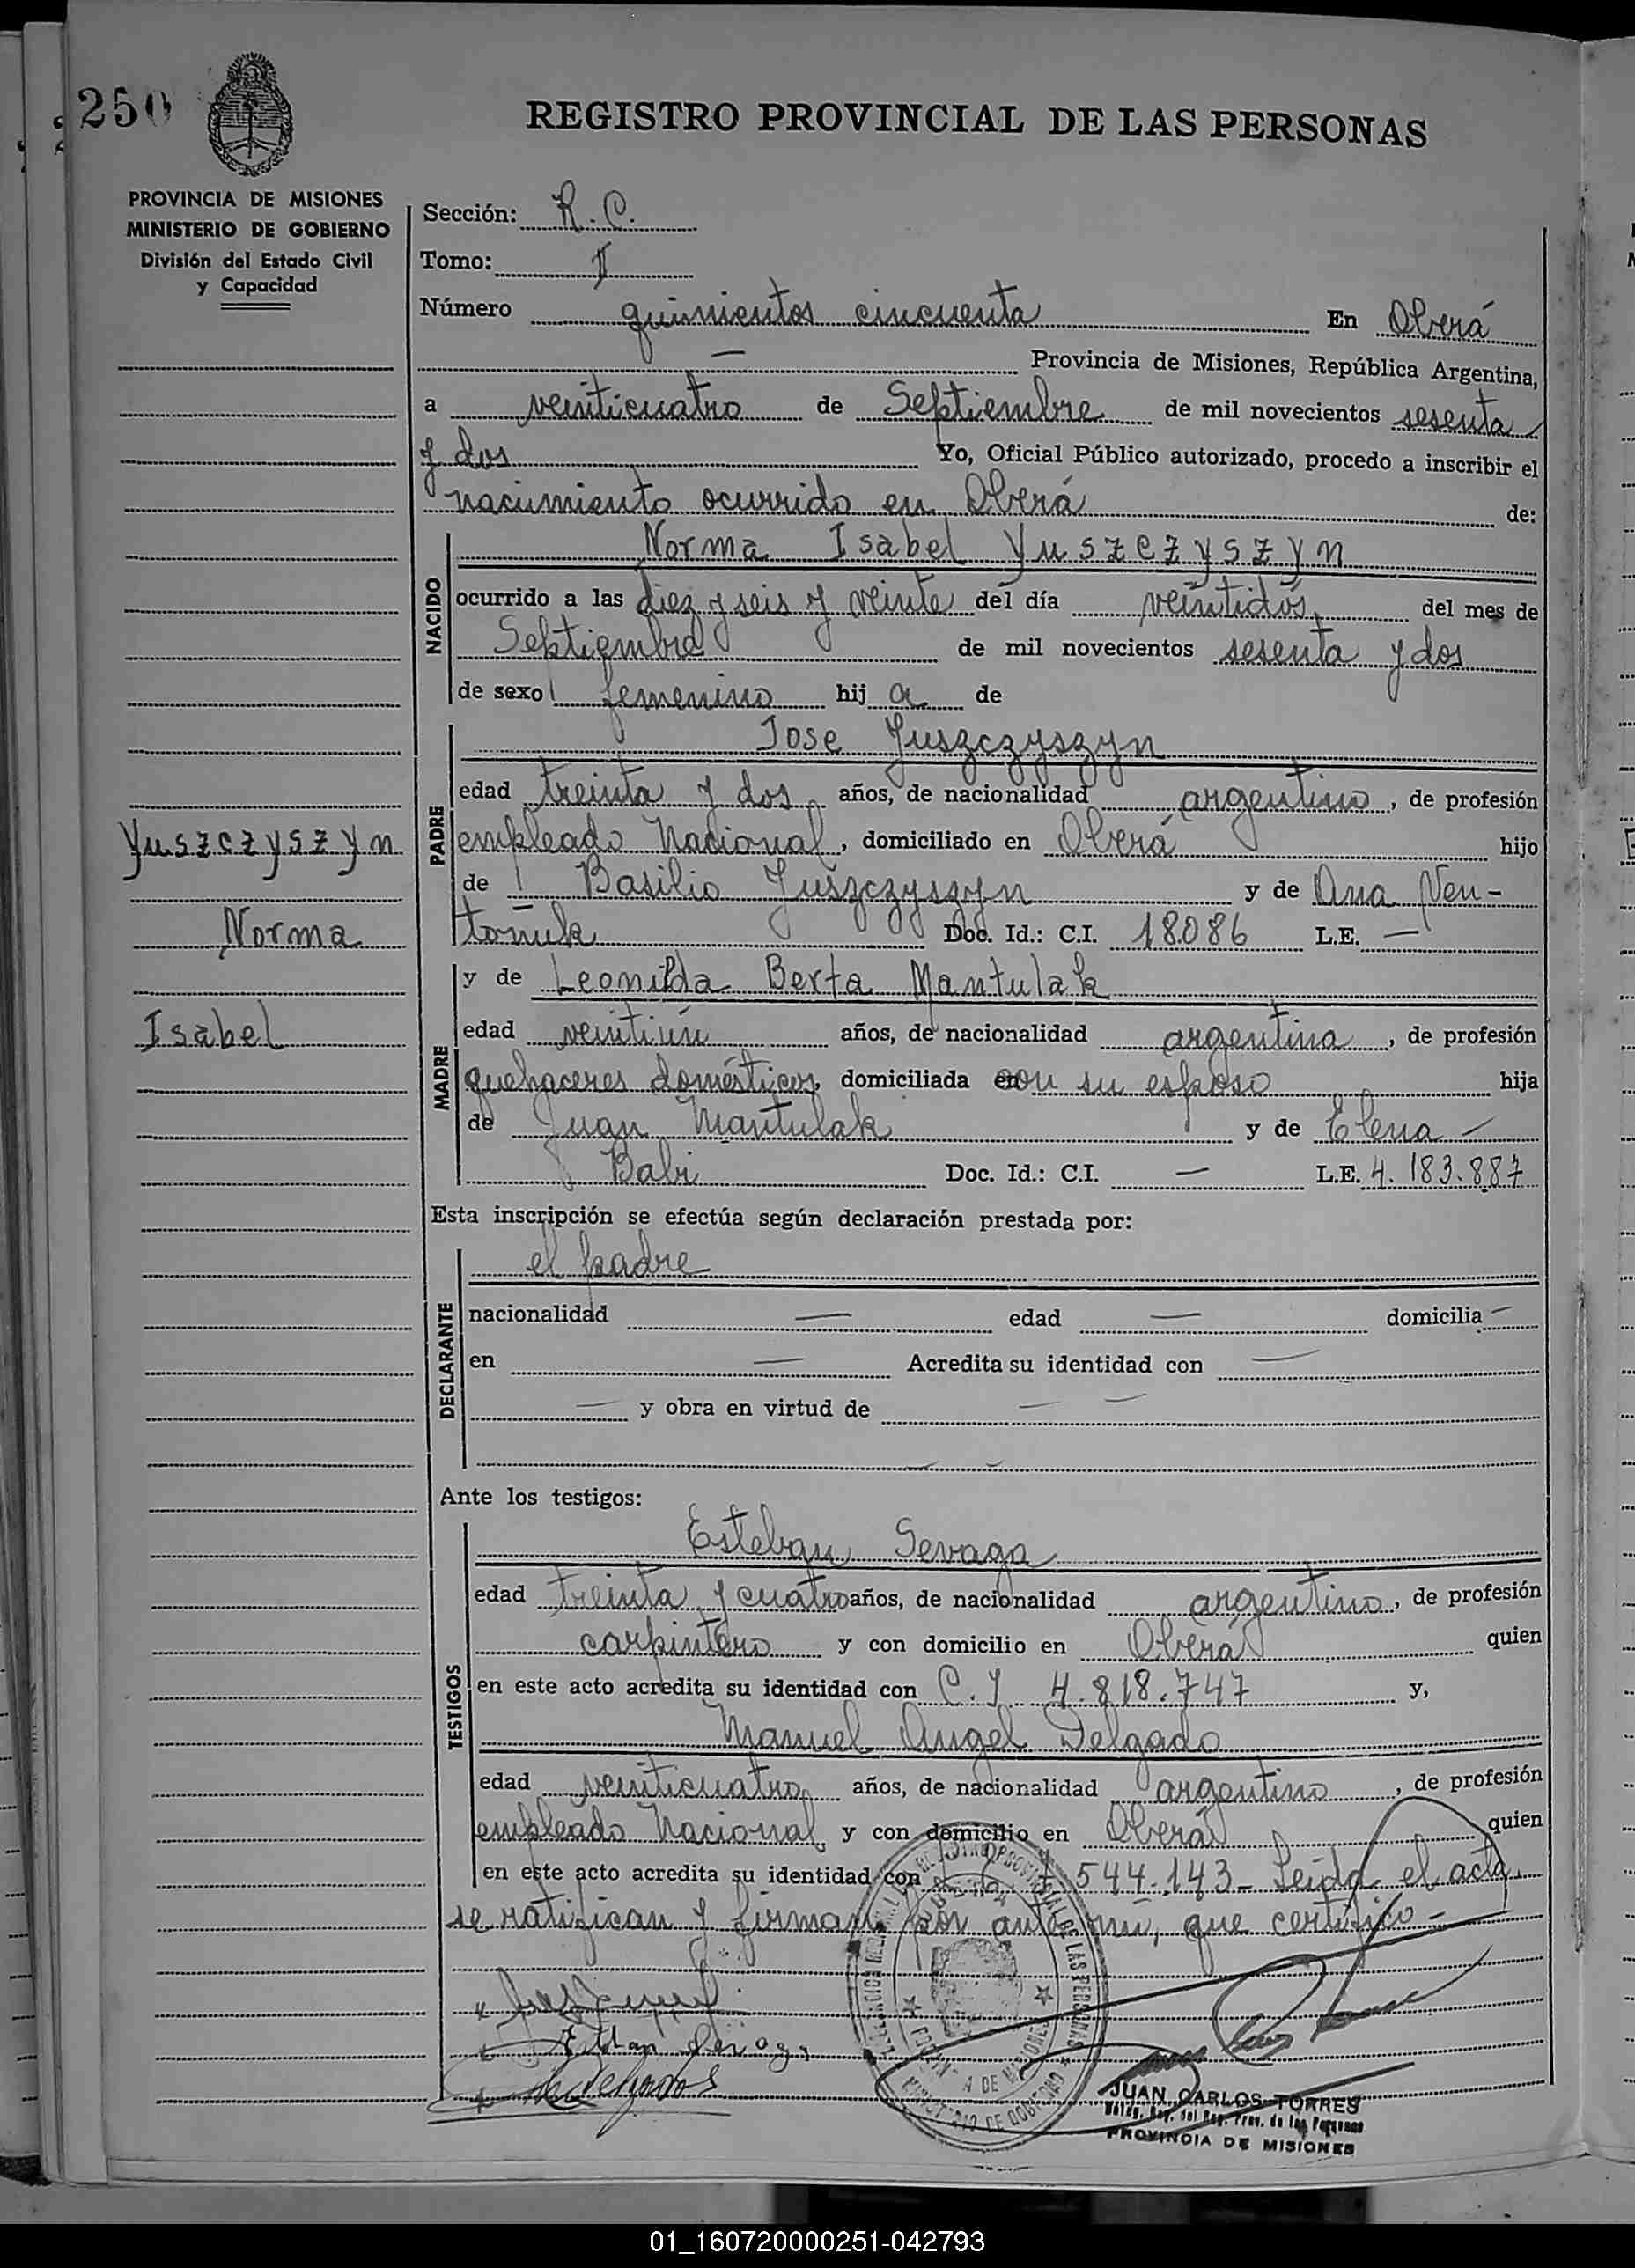 250
REGISTRO PROVINCIAL DE LAS PERSONAS
PROVINCIA DE MISIONES
MINISTERIO DE GOBIERNO
División del Estado Civil
y Capacidad
Sección: R. C.
Tomo: I
Número quinientos cincuenta En Oberá
— Provincia de Misiones, República Argentina,
a veinticuatro de Septiembre de mil novecientos sesenta
y dos Yo, Oficial Público autorizado, procedo a inscribir el
nacimiento ocurrido en Oberá de:
NACIDO
Norma Isabel Yuszczyszyn
ocurrido a las diez y seis y veinte del día veintidós del mes de
Septiembre de mil novecientos sesenta y dos
de sexo femenino hij a de
PADRE
Jose Yuszczyszyn
edad treinta y dos años, de nacionalidad argentino, de profesión
empleado Nacional, domiciliado en Oberá hijo
de Basilio Yuszczyszyn y de Ana Ven-
toñuk Doc. Id.: C.I. 18086 L.E. —
Yuszczyszyn
Norma
Isabel
MADRE
y de Leonilda Berta Mantulak
edad veintiún años, de nacionalidad argentina, de profesión
quehaceres domésticos, domiciliada en con su esposo hija
de Juan Mantulak y de Elena —
Babi Doc. Id.: C.I. — L.E. 4.183.887
Esta inscripción se efectúa según declaración prestada por:
DECLARANTE
el padre
nacionalidad — edad — domicilia —
en — Acredita su identidad con —
— y obra en virtud de — —
Ante los testigos:
TESTIGOS
Esteban Sevaga
edad treinta y cuatro años, de nacionalidad argentino, de profesión
carpintero y con domicilio en Oberá quien
en este acto acredita su identidad con C. I 4.818.747 y,
Manuel Angel Delgado
edad veinticuatro años, de nacionalidad argentino, de profesión
empleado Nacional, y con domicilio en Oberá quien
en este acto acredita su identidad con 544.143 — Leída el acta
se ratifican y firman por ante mí, que certifico —
JUAN CARLOS TORRES
PROVINCIA DE MISIONES
01_160720000251-042793